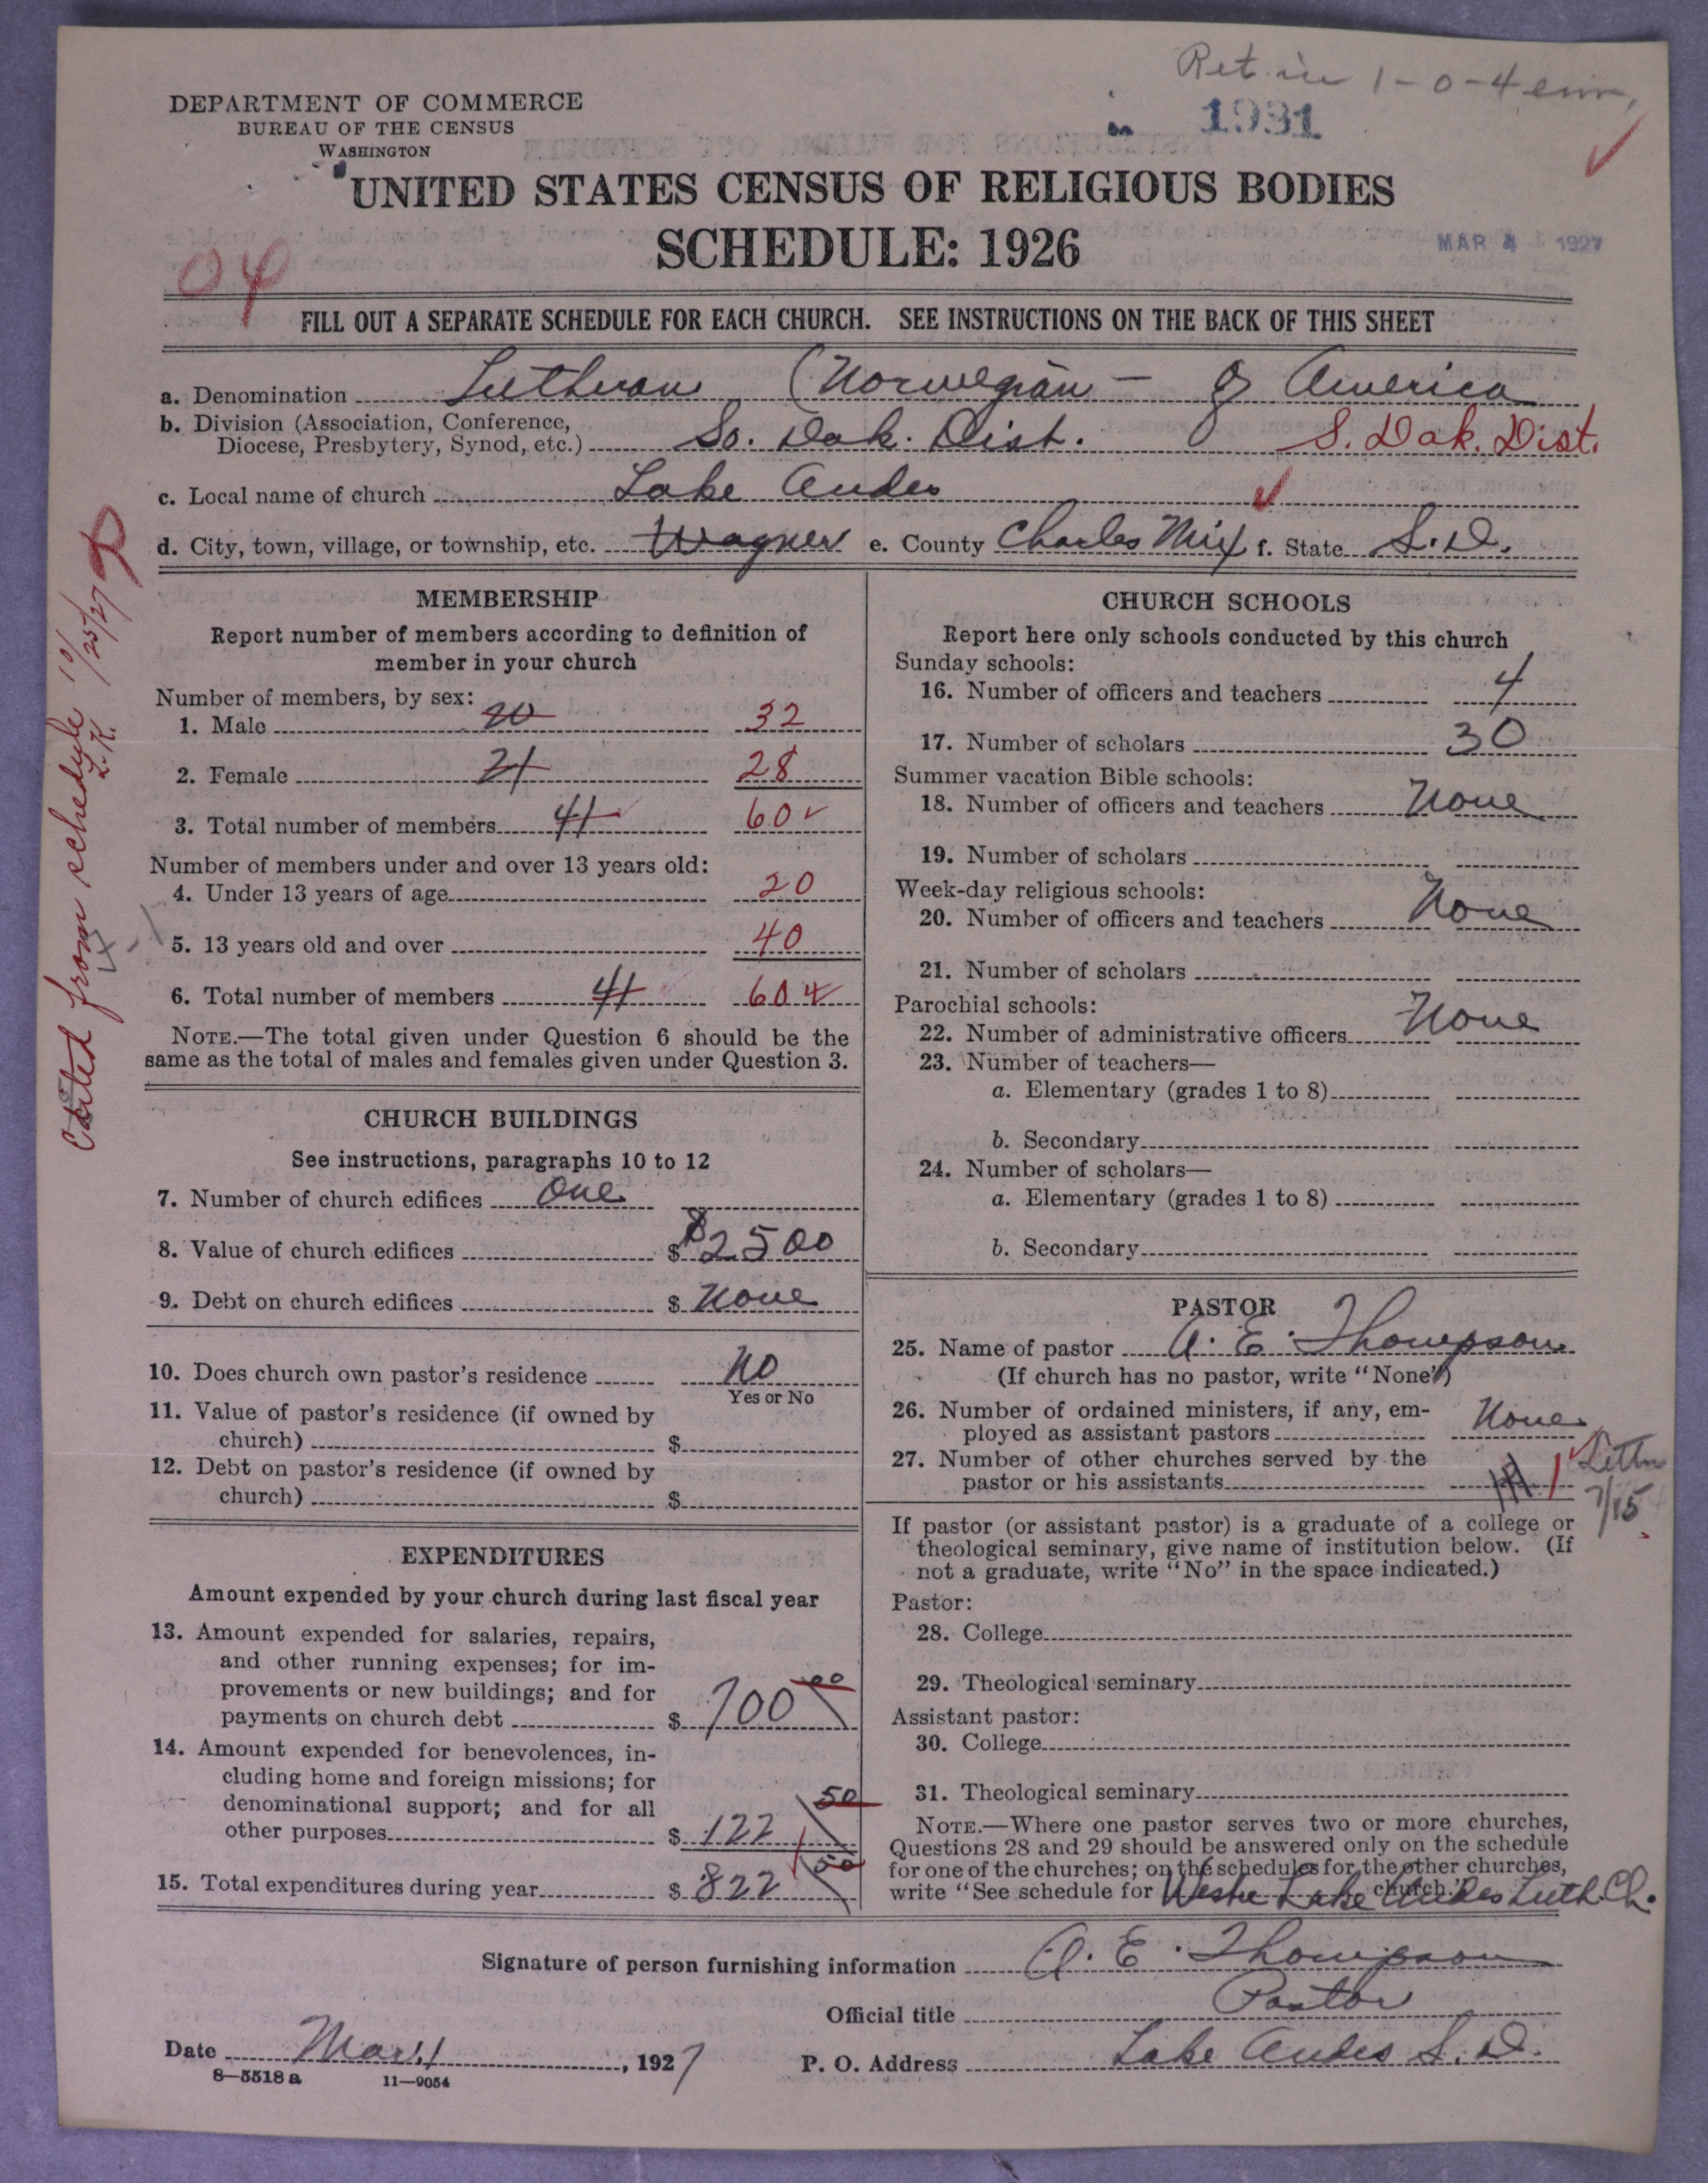 Ret. in 1-0-4
DEPARTMENT OF COMMERCE
BUREAU OF THE CENSUS
WASHINGTON
1931
UNITED STATES CENSUS OF RELIGIOUS BODIES
SCHEDULE: 1926
MAR 4 1927
04
FILL OUT A SEPARATE SCHEDULE FOR EACH CHURCH. SEE INSTRUCTIONS ON THE BACK OF THIS SHEET
a. Denomination Lutheran (Norwegian — of America
b. Division (Association, Conference,
Diocese, Presbytery, Synod, etc.) So. Dak. Dist. S. Dak. Dist.
c. Local name of church Lake Andes
d. City, town, village, or township, etc. Wagner e. County Charles Mix f. State S.D.
from schedule 10/25/27
L.K.
MEMBERSHIP
Report number of members according to definition of
member in your church
Number of members, by sex:
1. Male 20 32
2. Female 21 28
3. Total number of members 41 60
Number of members under and over 13 years old:
4. Under 13 years of age 20
5. 13 years old and over 40
6. Total number of members 41 60
NOTE.—The total given under Question 6 should be the
same as the total of males and females given under Question 3.
CHURCH BUILDINGS
See instructions, paragraphs 10 to 12
7. Number of church edifices One
8. Value of church edifices $ $2500
9. Debt on church edifices $ None
10. Does church own pastor's residence No
Yes or No
11. Value of pastor's residence (if owned by
church) $
12. Debt on pastor's residence (if owned by
church) $
EXPENDITURES
Amount expended by your church during last fiscal year
13. Amount expended for salaries, repairs,
and other running expenses; for im-
provements or new buildings; and for
payments on church debt $ 700 00
14. Amount expended for benevolences, in-
cluding home and foreign missions; for
denominational support; and for all
other purposes $ 122 50
15. Total expenditures during year $ 822 50
CHURCH SCHOOLS
Report here only schools conducted by this church
Sunday schools:
16. Number of officers and teachers 4
17. Number of scholars 30
Summer vacation Bible schools:
18. Number of officers and teachers None
19. Number of scholars
Week-day religious schools:
20. Number of officers and teachers None
21. Number of scholars
Parochial schools:
22. Number of administrative officers None
23. Number of teachers—
a. Elementary (grades 1 to 8)
b. Secondary
24. Number of scholars—
a. Elementary (grades 1 to 8)
b. Secondary
PASTOR
25. Name of pastor A. E. Thompson
(If church has no pastor, write "None")
26. Number of ordained ministers, if any, em-
ployed as assistant pastors None
27. Number of other churches served by the
pastor or his assistants 1
7/15
If pastor (or assistant pastor) is a graduate of a college or
theological seminary, give name of institution below. (If
not a graduate, write "No" in the space indicated.)
Pastor:
28. College
29. Theological seminary
Assistant pastor:
30. College
31. Theological seminary
NOTE.—Where one pastor serves two or more churches,
Questions 28 and 29 should be answered only on the schedule
for one of the churches; on the schedules for the other churches,
write "See schedule for Lake Andes Luth. Ch. church."
Signature of person furnishing information A. E. Thompson
Official title Pastor
Date Mar. 1, 1927 P. O. Address Lake Andes S. D.
8—5518 a 11—9054